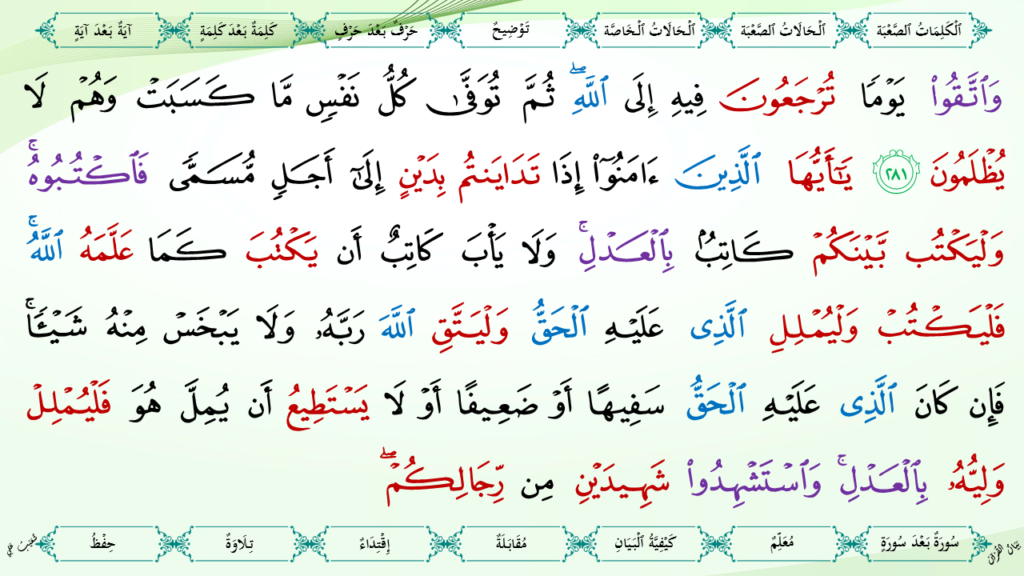 اَلْكَلِمَاتُ الصَّعْبَةُ اَلْحَالَاتُ الصَّعْبَةُ اَلْحَالَاتُ الْخَاصَّةُ تَوْضِيحٌ حَرْفٌ بَعْدَ حَرْفٍ كَلِمَةٌ بَعْدَ كَلِمَةٍ آيَةٌ بَعْدَ آيَةٍ
وَٱتَّقُوا۟ يَوْمًا تُرْجَعُونَ فِيهِ إِلَى ٱللَّهِ ۖ ثُمَّ تُوَفَّىٰ كُلُّ نَفْسٍ مَّا كَسَبَتْ وَهُمْ لَا
يُظْلَمُونَ ٢٨١ يَـٰٓأَيُّهَا ٱلَّذِينَ ءَامَنُوٓا۟ إِذَا تَدَايَنتُم بِدَيْنٍ إِلَىٰٓ أَجَلٍ مُّسَمًّى فَٱكْتُبُوهُ ۚ
وَلْيَكْتُب بَّيْنَكُمْ كَاتِبٌۢ بِٱلْعَدْلِ ۚ وَلَا يَأْبَ كَاتِبٌ أَن يَكْتُبَ كَمَا عَلَّمَهُ ٱللَّهُ ۚ
فَلْيَكْتُبْ وَلْيُمْلِلِ ٱلَّذِى عَلَيْهِ ٱلْحَقُّ وَلْيَتَّقِ ٱللَّهَ رَبَّهُۥ وَلَا يَبْخَسْ مِنْهُ شَيْـًٔا ۚ
فَإِن كَانَ ٱلَّذِى عَلَيْهِ ٱلْحَقُّ سَفِيهًا أَوْ ضَعِيفًا أَوْ لَا يَسْتَطِيعُ أَن يُمِلَّ هُوَ فَلْيُمْلِلْ
وَلِيُّهُۥ بِٱلْعَدْلِ ۚ وَٱسْتَشْهِدُوا۟ شَهِيدَيْنِ مِن رِّجَالِكُمْ ۖ
سُورَةٌ بَعْدَ سُورَةٍ مُعَلِّمٌ كَيْفِيَّةُ الْبَيَانِ مُقَابَلَةٌ إِقْتِدَاءٌ تِلَاوَةٌ حِفْظٌ